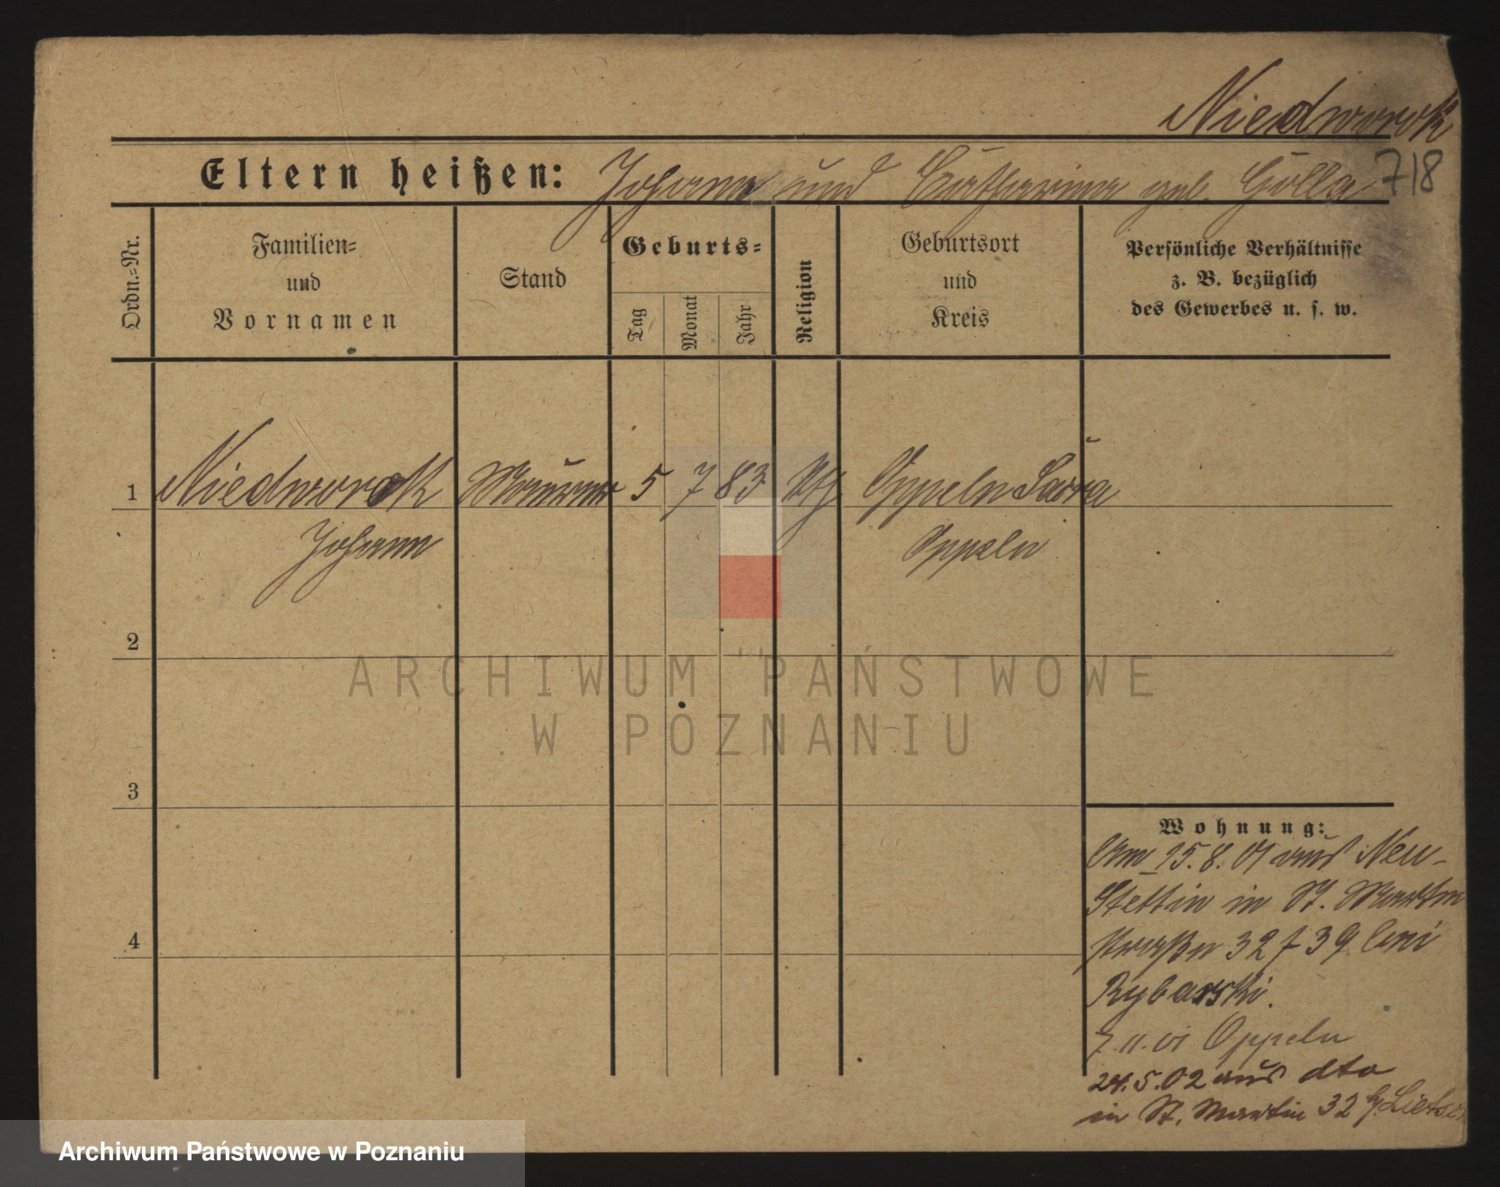 Niedworok
718
Eltern heißen: Johann und Catharina geb. Golla
Ordn.-Nr.
Familien-
und
Vornamen
Stand
Geburts-
Tag
Monat
Jahr
Religion
Geburtsort
und
Kreis
Persönliche Verhältnisse
z. B. bezüglich
des Gewerbes u. s. w.
1 Niedworok Maurer 5 7 83 Oppeln
Johann Oppeln
2
3
4
Wohnung:
Am 15.8.01 aus Neu-
Stettin in St. Martin
straße 32 39 bei
Rybarski.
7.11.01 Oppeln
24.5.02 aus dto
in St. Martin 32
ARCHIWUM PAŃSTWOWE
W POZNANIU
Archiwum Państwowe w Poznaniu